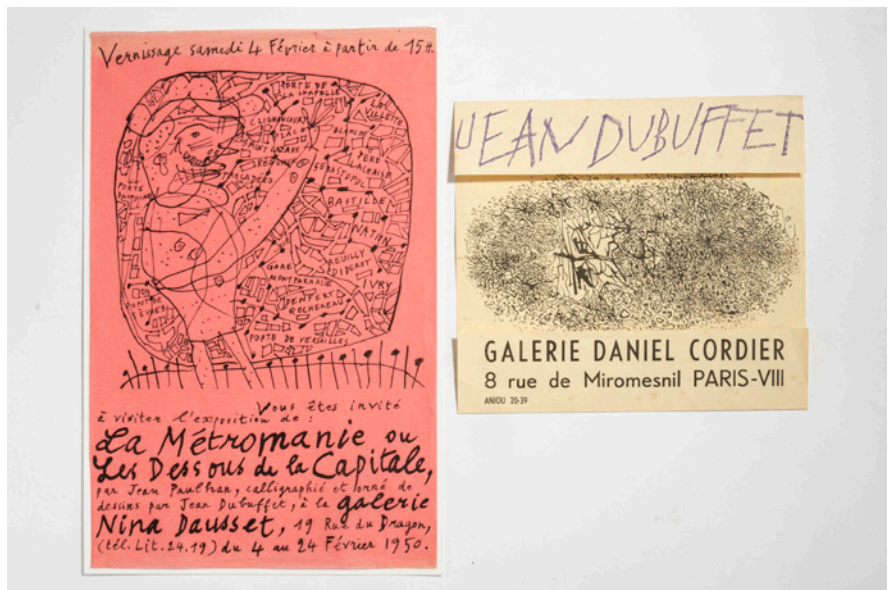 Vernissage samedi 4 Février à partir de 15 H.
PORTE DE
LA CHAPELLE
LA
VILLETTE
CLIGNANCOURT
BLANCHE
SAINT LAZARE
PÈRE
LACHAISE
SEBASTOPOL
TROCADERO
PORTE
DAUPHINE
BASTILLE
NATION
REUILLY
DIDEROT
GARE
MONTPARNASSE
IVRY
DENFERT
ROCHEREAU
PONT DE
SÈVRES
PORTE DE VERSAILLES
Vous êtes invité
à visiter l'exposition de :
La Métromanie ou
Les Dessous de la Capitale,
par Jean Paulhan, calligraphié et orné de
dessins par Jean Dubuffet, à la galerie
Nina Dausset, 19 Rue du Dragon,
(tél. Lit. 24.19) du 4 au 24 Février 1950.
JEAN DUBUFFET
GALERIE DANIEL CORDIER
8 rue de Miromesnil PARIS-VIII
ANJOU 20-39